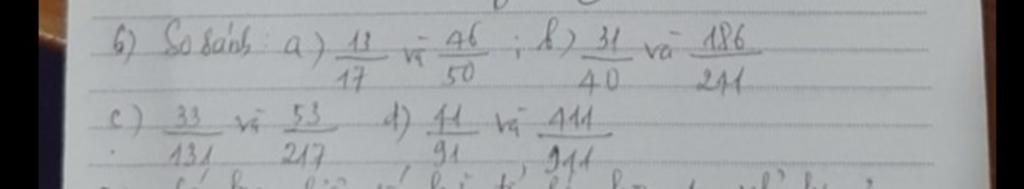 6) So sánh: a) 13/17 và 46/50 ; b) 31/40 và 186/241
c) 33/131 và 53/217 d) 41/91 và 411/911